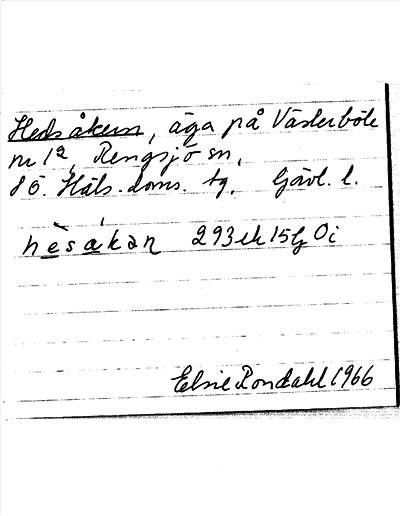 Hedsåkern, äga på Västerböle
nr 12, Rengsjö sn,
Sö. Häls. doms. tg, Gävl. l.
hèsákan 293 ek 15g Oi
Elsie Rondahl 1966